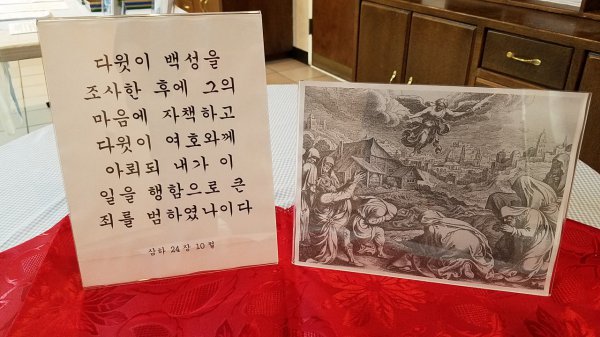 다윗이 백성을
조사한 후에 그의
마음에 자책하고
다윗이 여호와께
아뢰되 내가 이
일을 행함으로 큰
죄를 범하였나이다
삼하 24 장 10 절